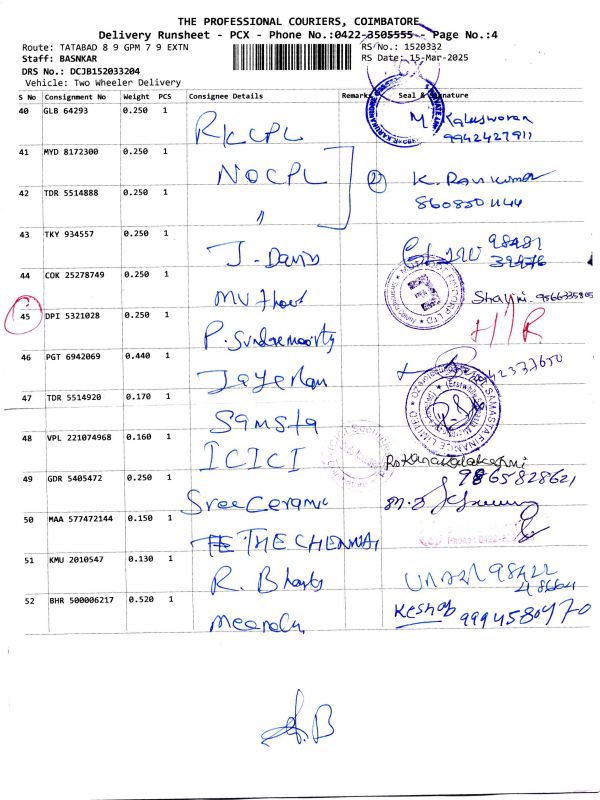 THE PROFESSIONAL COURIERS, COIMBATORE
Delivery Runsheet - PCX - Phone No.:0422-3505555 - Page No.:4
Route: TATABAD 8 9 GPM 7 9 EXTN RS No.: 1520332
Staff: BASNKAR RS Date: 15-Mar-2025
DRS No.: DCJB152033204
Vehicle: Two Wheeler Delivery
S No Consignment No Weight PCS Consignee Details Remarks Seal & Signature
40 GLB 64293 0.250 1 RKCPL M Kaleswaran
9942427911
41 MYD 8172300 0.250 1 NOCPL
42 TDR 5514888 0.250 1 " (2) K. Ravikumar
43 TKY 934557 0.250 1 J. David
44 COK 25278749 0.250 1 Muthoot Shalini
45 DPI 5321028 0.250 1 P. Sundramoorty H/R
46 PGT 6942069 0.440 1 Jayeram
47 TDR 5514920 0.170 1 Samsta
48 VPL 221074968 0.160 1 ICICI
49 GDR 5405472 0.250 1 Sree Ceramic 9865828621
50 MAA 577472144 0.150 1 THE CHENNAI
51 KMU 2010547 0.130 1 R. Bharts 98422
52 BHR 500006217 0.520 1 Meenalu Keshob 9994580470